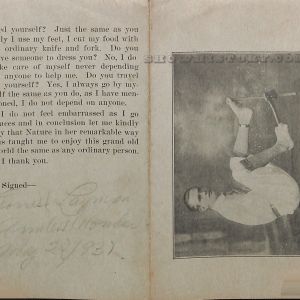 ed yourself? Just the same as you
ly I use my feet, I cut my food with
ordinary knife and fork. Do you
ve someone to dress you? No, I do
ke care of myself never depending
anyone to help me. Do you travel
yourself? Yes, I always go by my-
lf the same as you do, as I have men-
oned, I do not depend on anyone.
I do not feel embarrassed as I go
nces and in conclusion let me kindly
y that Nature in her remarkable way
s taught me to enjoy this grand old
orld the same as any ordinary person.
I thank you.
Signed—
Armless Wonder
1937
SHOWHISTORY.COM